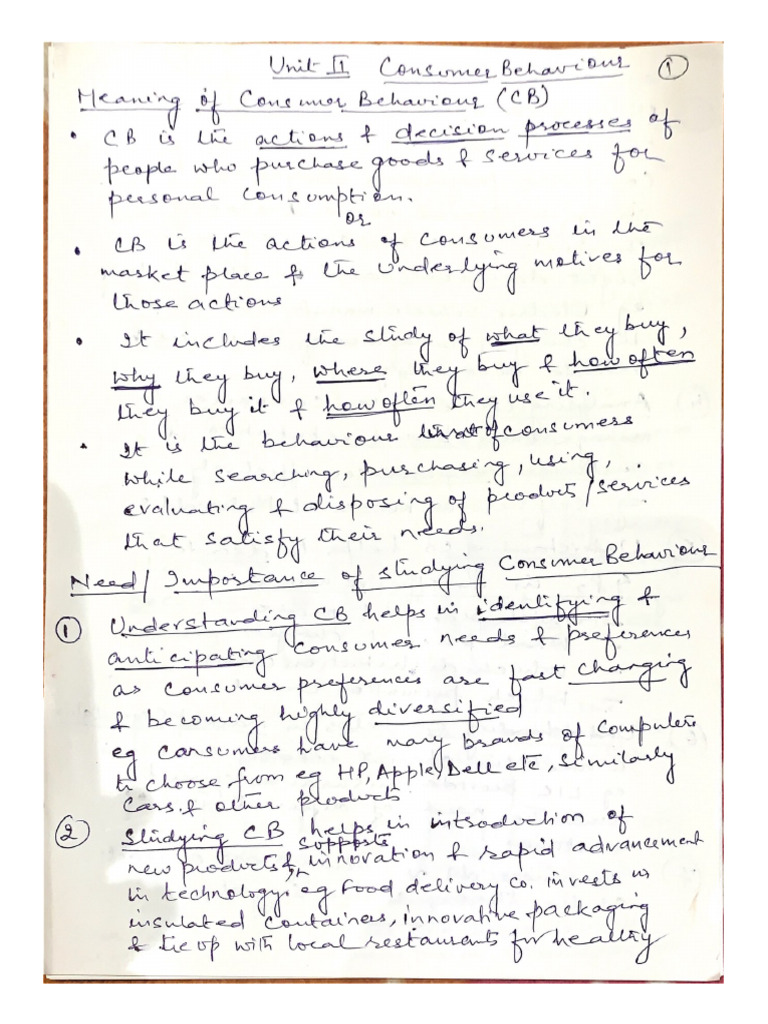 Unit II Consumer Behaviour 1
Meaning of Consumer Behaviour (CB)
• CB is the actions & decision processes of
people who purchase goods & services for
personal consumption.
or
• CB is the actions of consumers in the
market place & the underlying motives for
those actions
• It includes the study of what they buy,
why they buy, where they buy & how often
they buy it & how often they use it.
• It is the behaviour of consumers
while searching, purchasing, using,
evaluating & disposing of product/services
that satisfy their needs.
Need/Importance of studying Consumer Behaviour
1 Understanding CB helps in identifying &
anticipating consumer needs & preferences
as consumer preferences are fast changing
& becoming highly diversified
eg consumers have many brands of computers
to choose from eg HP, Apple, Dell etc, similarly
cars & other products
2 Studying CB helps in introduction of
supports
new products & innovation & rapid advancement
in technology. eg Food delivery co. invests in
insulated containers, innovative packaging
& tie up with local restaurants for healthy